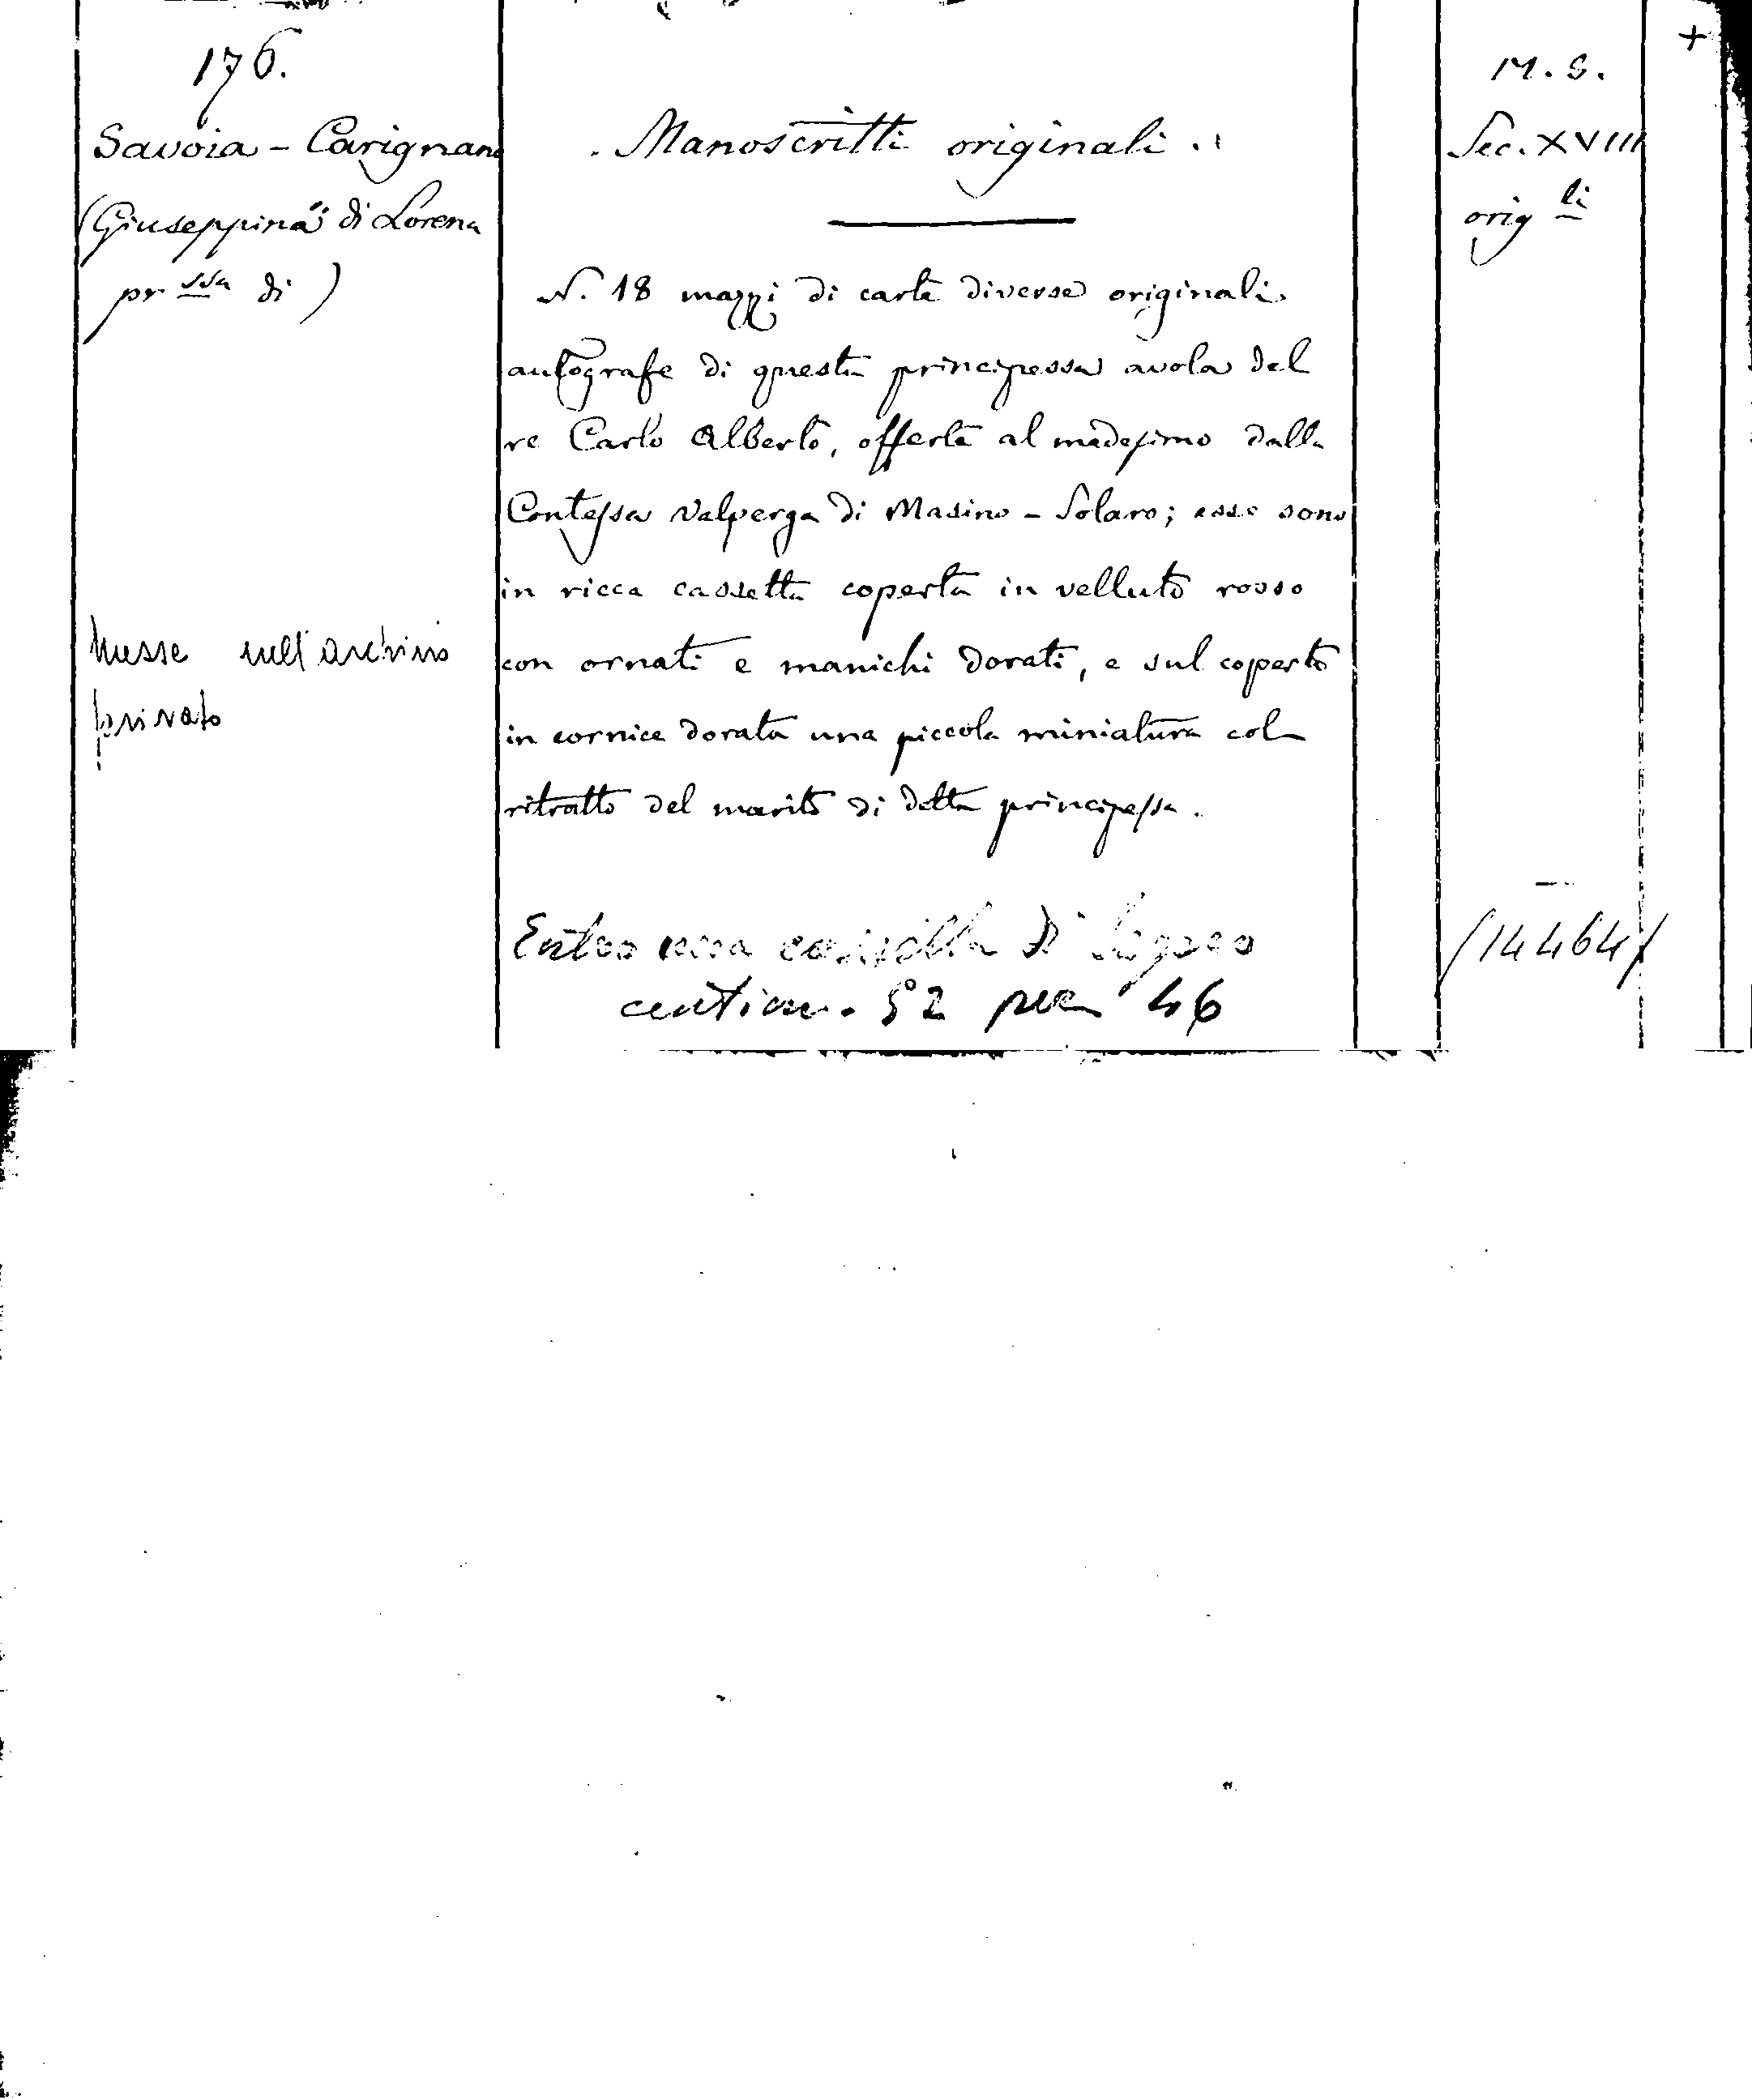 176.
Savoia - Carignano
(Giuseppina di Lorena
pr ssa di)
Messe nell'archivio
privato
Manoscritti originali.
N. 18 mazzi di carte diverse originali
autografe di questa principessa avola del
re Carlo Alberto, offerte al medesimo dalla
Contessa Valperga di Masino - Solaro; esse sono
in ricca cassetta coperta in velluto rosso
con ornati e manichi dorati, e sul coperto
in cornice dorata una piccola miniatura col
ritratto del marito di detta principessa.
Entro una cassetta di legno
centim. 52 per 46
M. S.
Sec. XVIII
orig li
(14464)
+